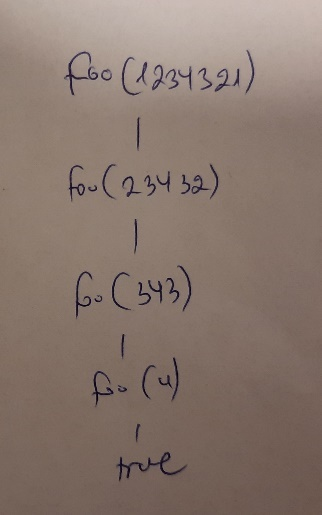 foo(1234321)
foo(23432)
foo(343)
foo(4)
true